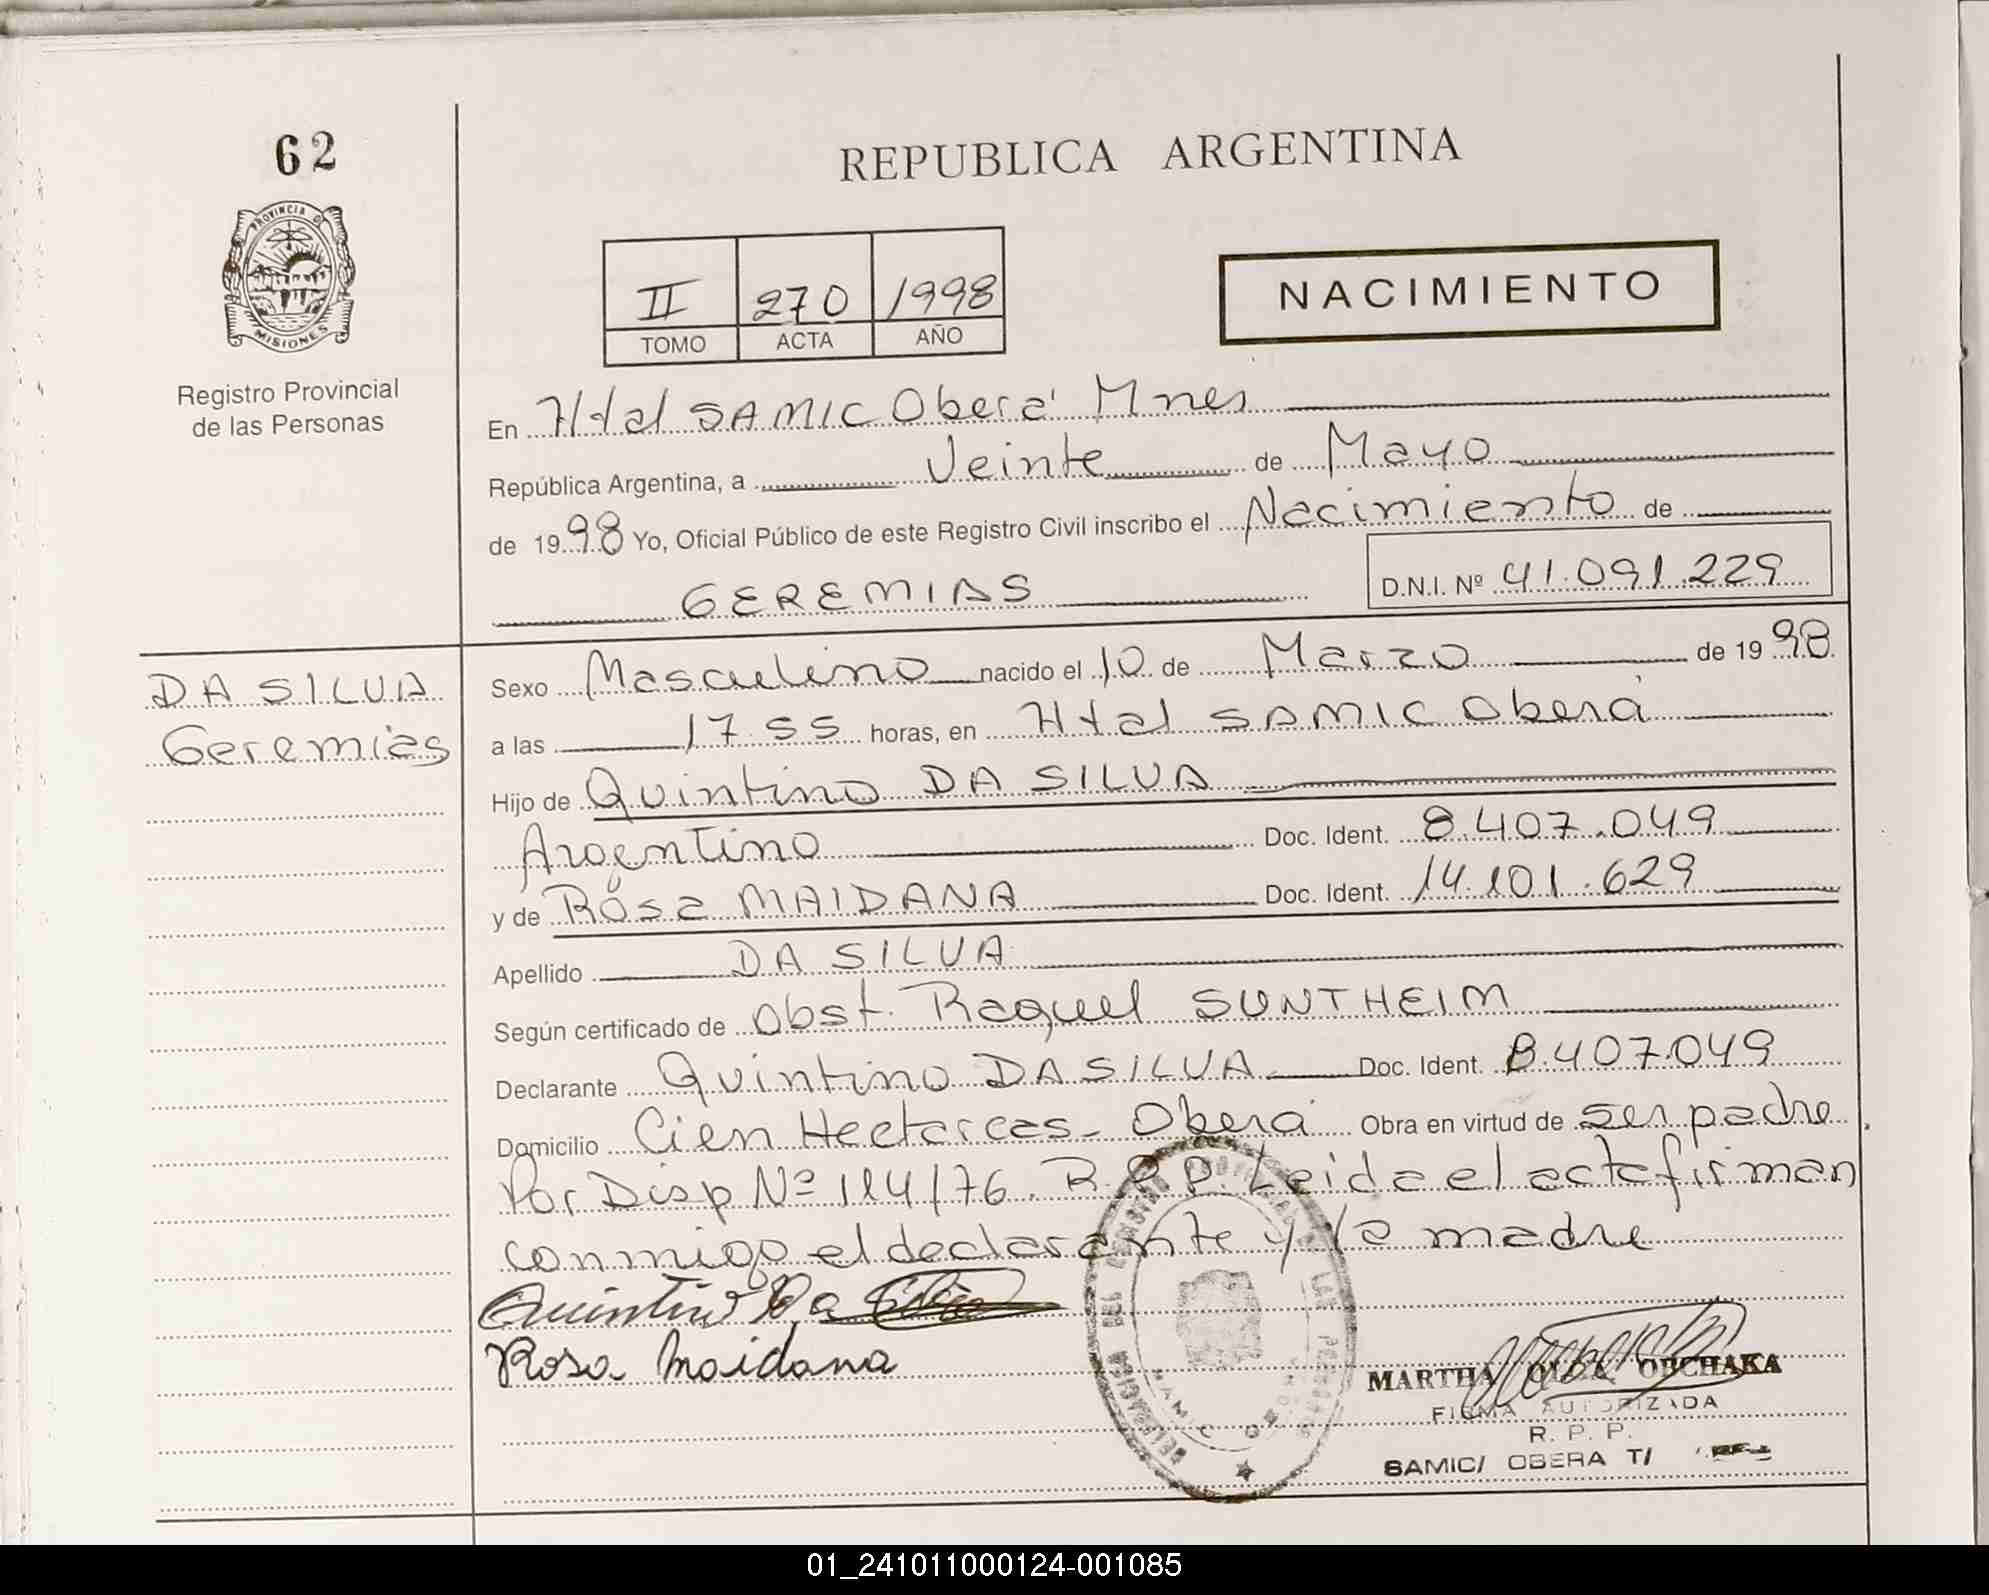 62
REPUBLICA ARGENTINA
PROVINCIA D
MISIONES
Registro Provincial
de las Personas
II 270 1998
TOMO ACTA AÑO
NACIMIENTO
En Htal SAMIC Oberá Mnes
República Argentina, a Veinte de Mayo
de 1998 Yo, Oficial Público de este Registro Civil inscribo el Nacimiento de
GEREMIAS D.N.I. Nº 41.091.229
DA SILVA
Geremias
Sexo Masculino nacido el 10 de Marzo de 1998
a las 17.55 horas, en Htal SAMIC Oberá
Hijo de Quintino DA SILVA
Argentino Doc. Ident. 8.407.049
y de Rosa MAIDANA Doc. Ident. 14.101.629
Apellido DA SILVA
Según certificado de Obst. Raquel SUNTHEIM
Declarante Quintino DA SILVA Doc. Ident. 8.407.049
Domicilio Cien Hectareas - Oberá Obra en virtud de ser padre
Por Disp Nº 114/76. R.P.P. Leida el acta firman
conmigo el declarante y la madre
Quintino Da Silva
Rosa Maidana
DELEGACION DEL REGISTRO PROVINCIAL DE LAS PERSONAS
MARTHA OLGA OBCHAKA
FIRMA AUTORIZADA
R. P. P.
SAMIC/ OBERA T/
01_241011000124-001085